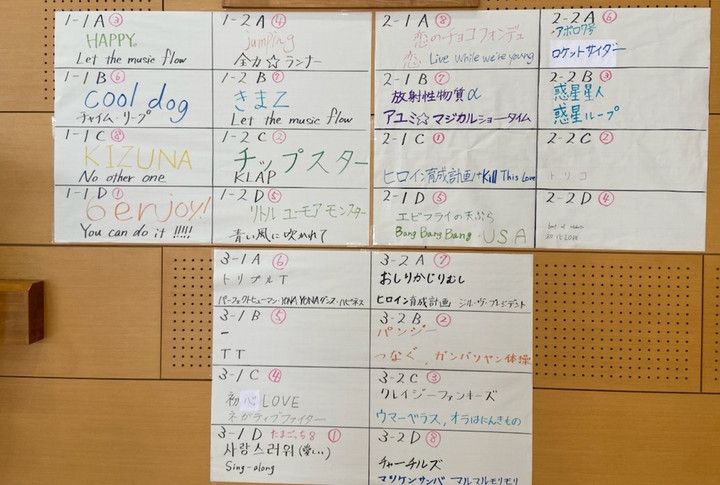 1-1A ③
HAPPY。
Let the music flow
1-1B ⑥
Cool dog
チャイム・リープ
1-1C ⑧
KIZUNA
No other one
1-1D ①
6enjoy!
You can do it !!!!!
1-2A ④
jumping
全力☆ランナー
1-2B ⑦
きまZ
Let the music flow
1-2C ②
チップスター
KLAP
1-2D ⑤
リトル ユーモア モンスター
青い風に吹かれて
2-1A ⑧
恋のチョコフォンデュ
恋, Live while we're young
2-1B ⑦
放射性物質α
アユミ☆マジカルショータイム
2-1C ①
ヒロイン育成計画+Kill This Love
2-1D ⑤
エビフライの天ぷら
Bang Bang Bang・USA
2-2A ⑥
アポロ7号
ロケットサイダー
2-2B ③
惑星星人
惑星ループ
2-2C ②
トリコ
2-2D ④
3-1A ⑥
トリプルT
パーフェクトヒューマン・YONA YONAダンス・ハピネス
3-1B ⑤
ー
TT
3-1C ④
初心LOVE
ネガティブファイター
3-1D たまご、58 ①
사랑스러워(愛しい..)
Sing-along
3-2A ⑦
おしりかじりむし
ヒロイン育成計画 シル・ヴ・プレジデント
3-2B ②
パンジー
つなぐ, ガンバリヤン体操
3-2C ③
クレイジーファンキーズ
ウマーベラス, オラはにんきもの
3-2D ⑧
チャーチルズ
マツケンサンバ マルマルモリモリ